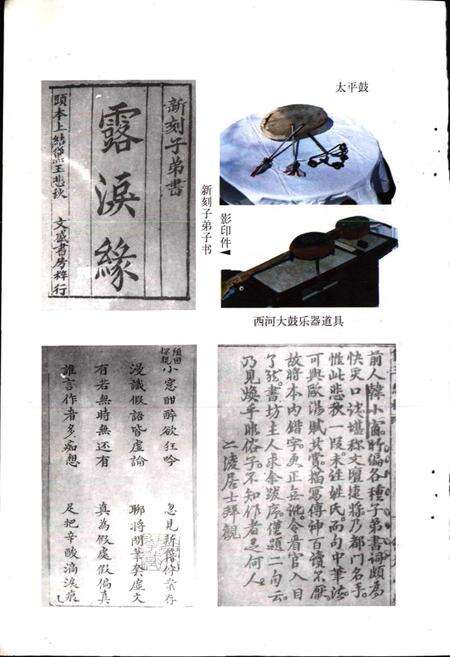 新刻子弟書
露淚緣
頭本上結黛玉悲秋
文盛書房梓行
太平鼓
新刻子弟子书
影印件
西河大鼓乐器道具
小窓酣醉欲狂吟
忽見新籍作業存
漫識假語皆虛論
聊將閒筆癸虛文
有若無時無還有
真為假處假偏真
誰言作者多痴想
足把辛酸滴淚痕
前人韓小窗所編各種子弟書詞頗為
快炙口諗堪称文壇捷將乃都門名手
惟此悲秋一段未注姓氏而句中筆法
可與歐陽賦共賞描寫傳神百讀不厭
故將本內錯字更正無訛令看官入目
了然書坊主人求余跋序僅題二句云
乃見煥乎眼俗子不知作者是何人
二凌居士拜觀